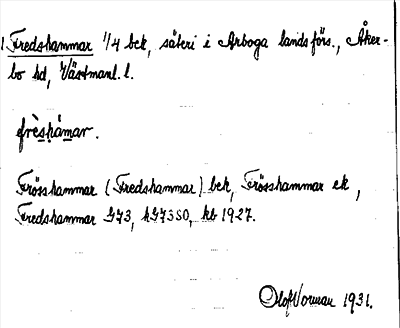 1. Fredshammar 1/4 bek, säteri i Arboga landsförs., Åker-
bo hd, Västmanl. l.
frèshámar.
Frösshammar (Fredshammar) bek, Frösshammar ek,
Fredshammar G73, hG73SO, kb 1927.
Olof Norman 1931.